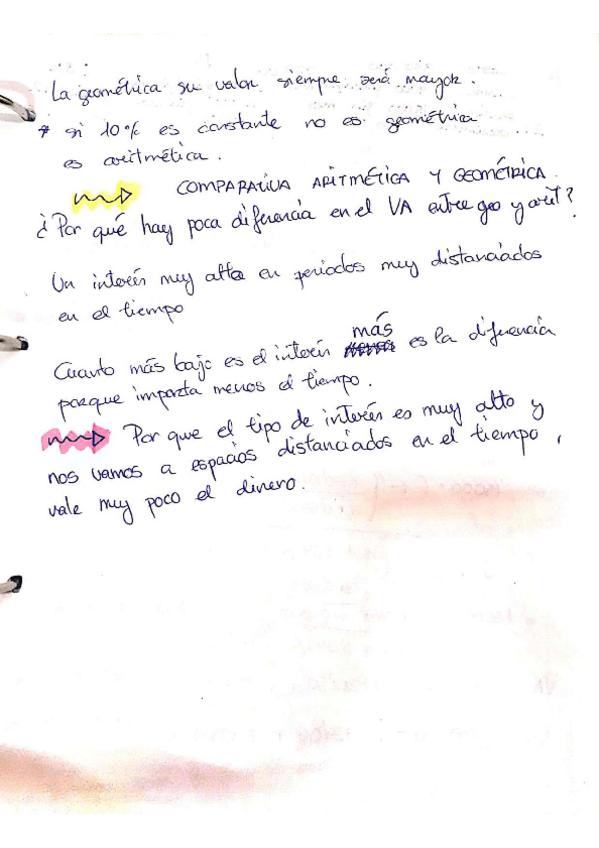 La geométrica su valor siempre será mayor.
* si 10% es constante no es geométrica
es aritmética.
COMPARATIVA ARITMÉTICA Y GEOMÉTRICA.
¿Por qué hay poca diferencia en el VA entre geo y arit?
Un interés muy alto en periodos muy distanciados
en el tiempo
Cuanto más bajo es el interés más es la diferencia
porque importa menos el tiempo.
Por que el tipo de interés es muy alto y
nos vamos a espacios distanciados en el tiempo,
vale muy poco el dinero.